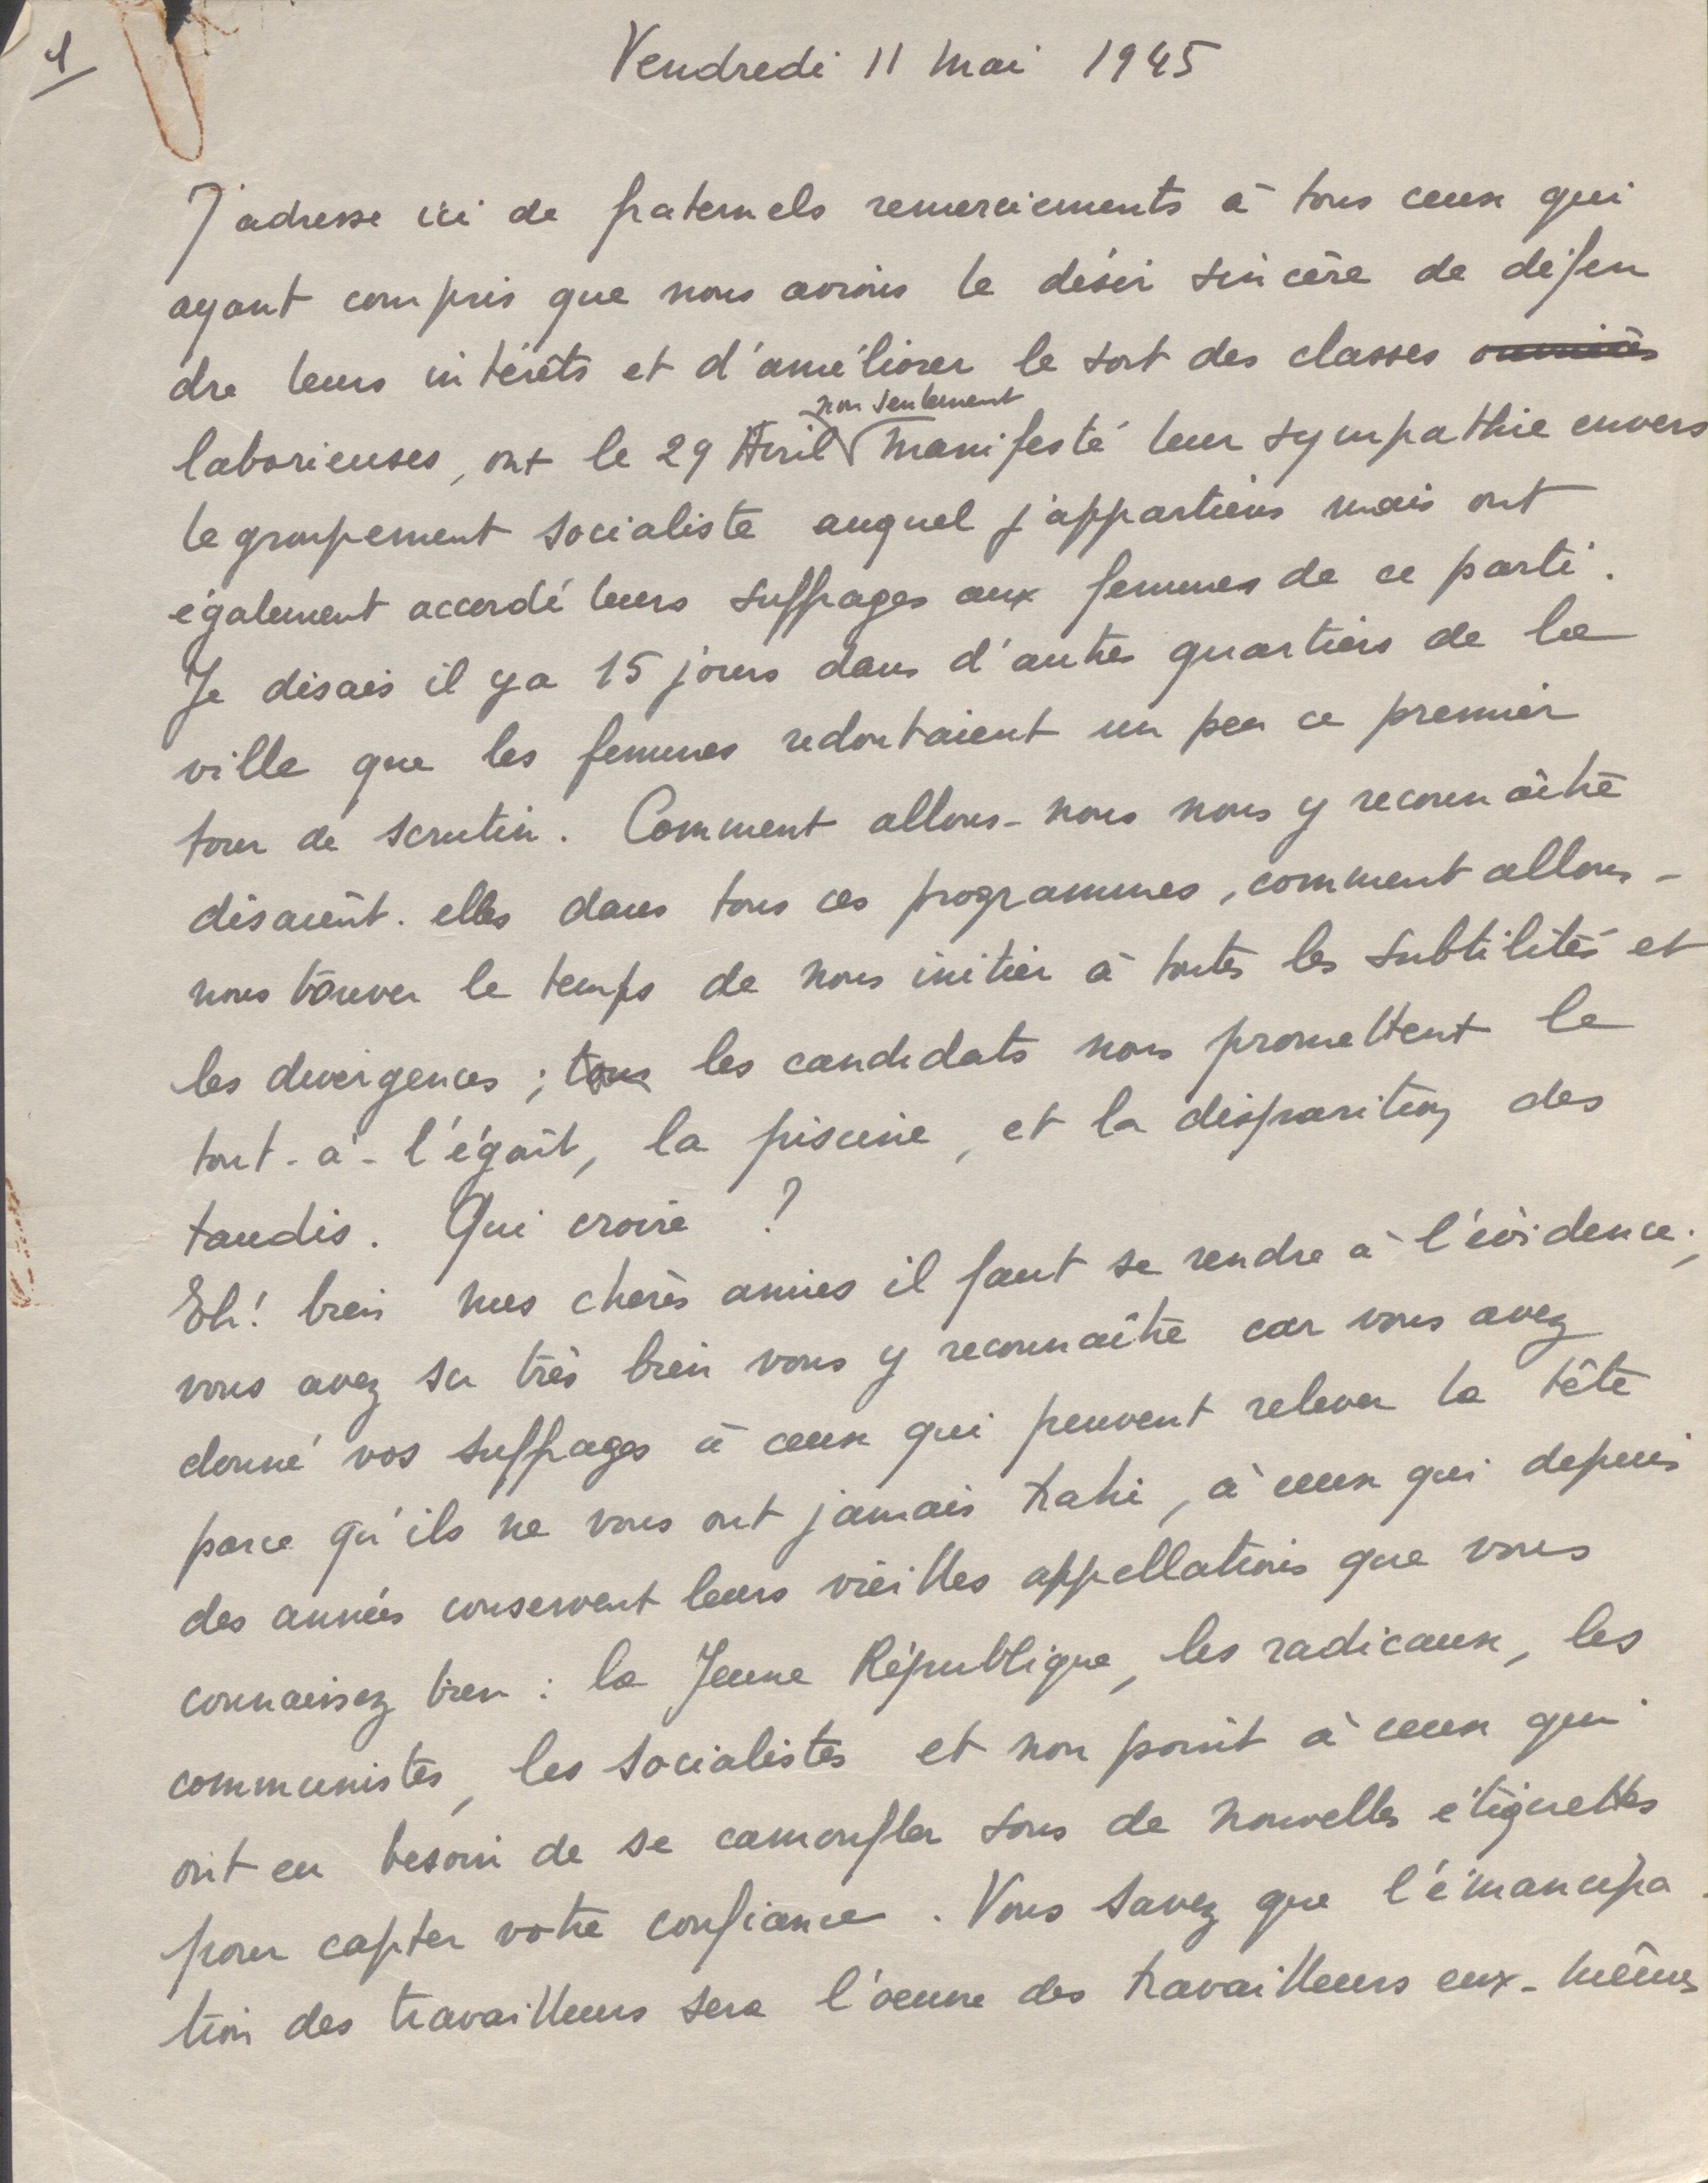 1
Vendredi 11 Mai 1945
J'adresse ici de fraternels remerciements à tous ceux qui
ayant compris que nous avions le désir sincère de défen
dre leurs intérêts et d'améliorer le sort des classes ouvrières
non seulement
laborieuses, ont le 29 Avril manifesté leur sympathie envers
le groupement socialiste auquel j'appartiens mais ont
également accordé leurs suffrages aux femmes de ce parti.
Je disais il y a 15 jours dans d'autres quartiers de la
ville que les femmes redoutaient un peu ce premier
tour de scrutin. Comment allons-nous nous y reconnaître
disaient-elles dans tous ces programmes, comment allons-
nous trouver le temps de nous initier à toutes les subtilités et
les divergences ; tous les candidats nous promettent le
tout-à-l'égoût, la piscine, et la disparition des
taudis. Qui croire ?
Eh! bien mes chères amies il faut se rendre à l'évidence ;
vous avez su très bien vous y reconnaître car vous avez
donné vos suffrages à ceux qui peuvent relever la tête
parce qu'ils ne vous ont jamais trahi, à ceux qui depuis
des années conservent leurs vieilles appellations que vous
connaissez bien : la Jeune République, les radicaux, les
communistes, les socialistes et non point à ceux qui
ont eu besoin de se camoufler sous de nouvelles étiquettes
pour capter votre confiance. Vous savez que l'émancipa
tion des travailleurs sera l'oeuvre des travailleurs eux-mêmes